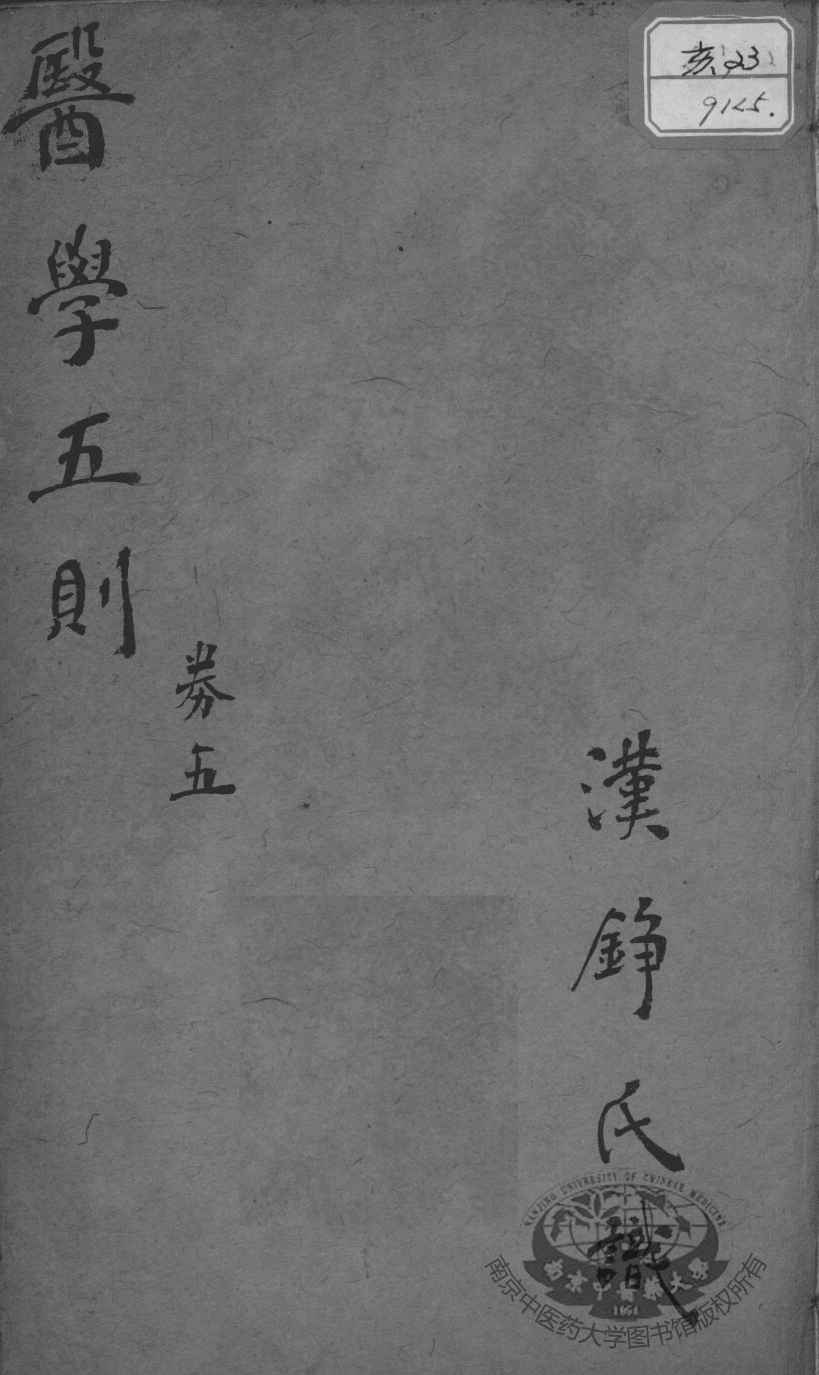 醫學五則
券五
漢錚氏識
亥23
9125.
NANJING UNIVERSITY OF CHINESE MEDICINE
南京中醫藥大學
1954
南京中医药大学图书馆版权所有